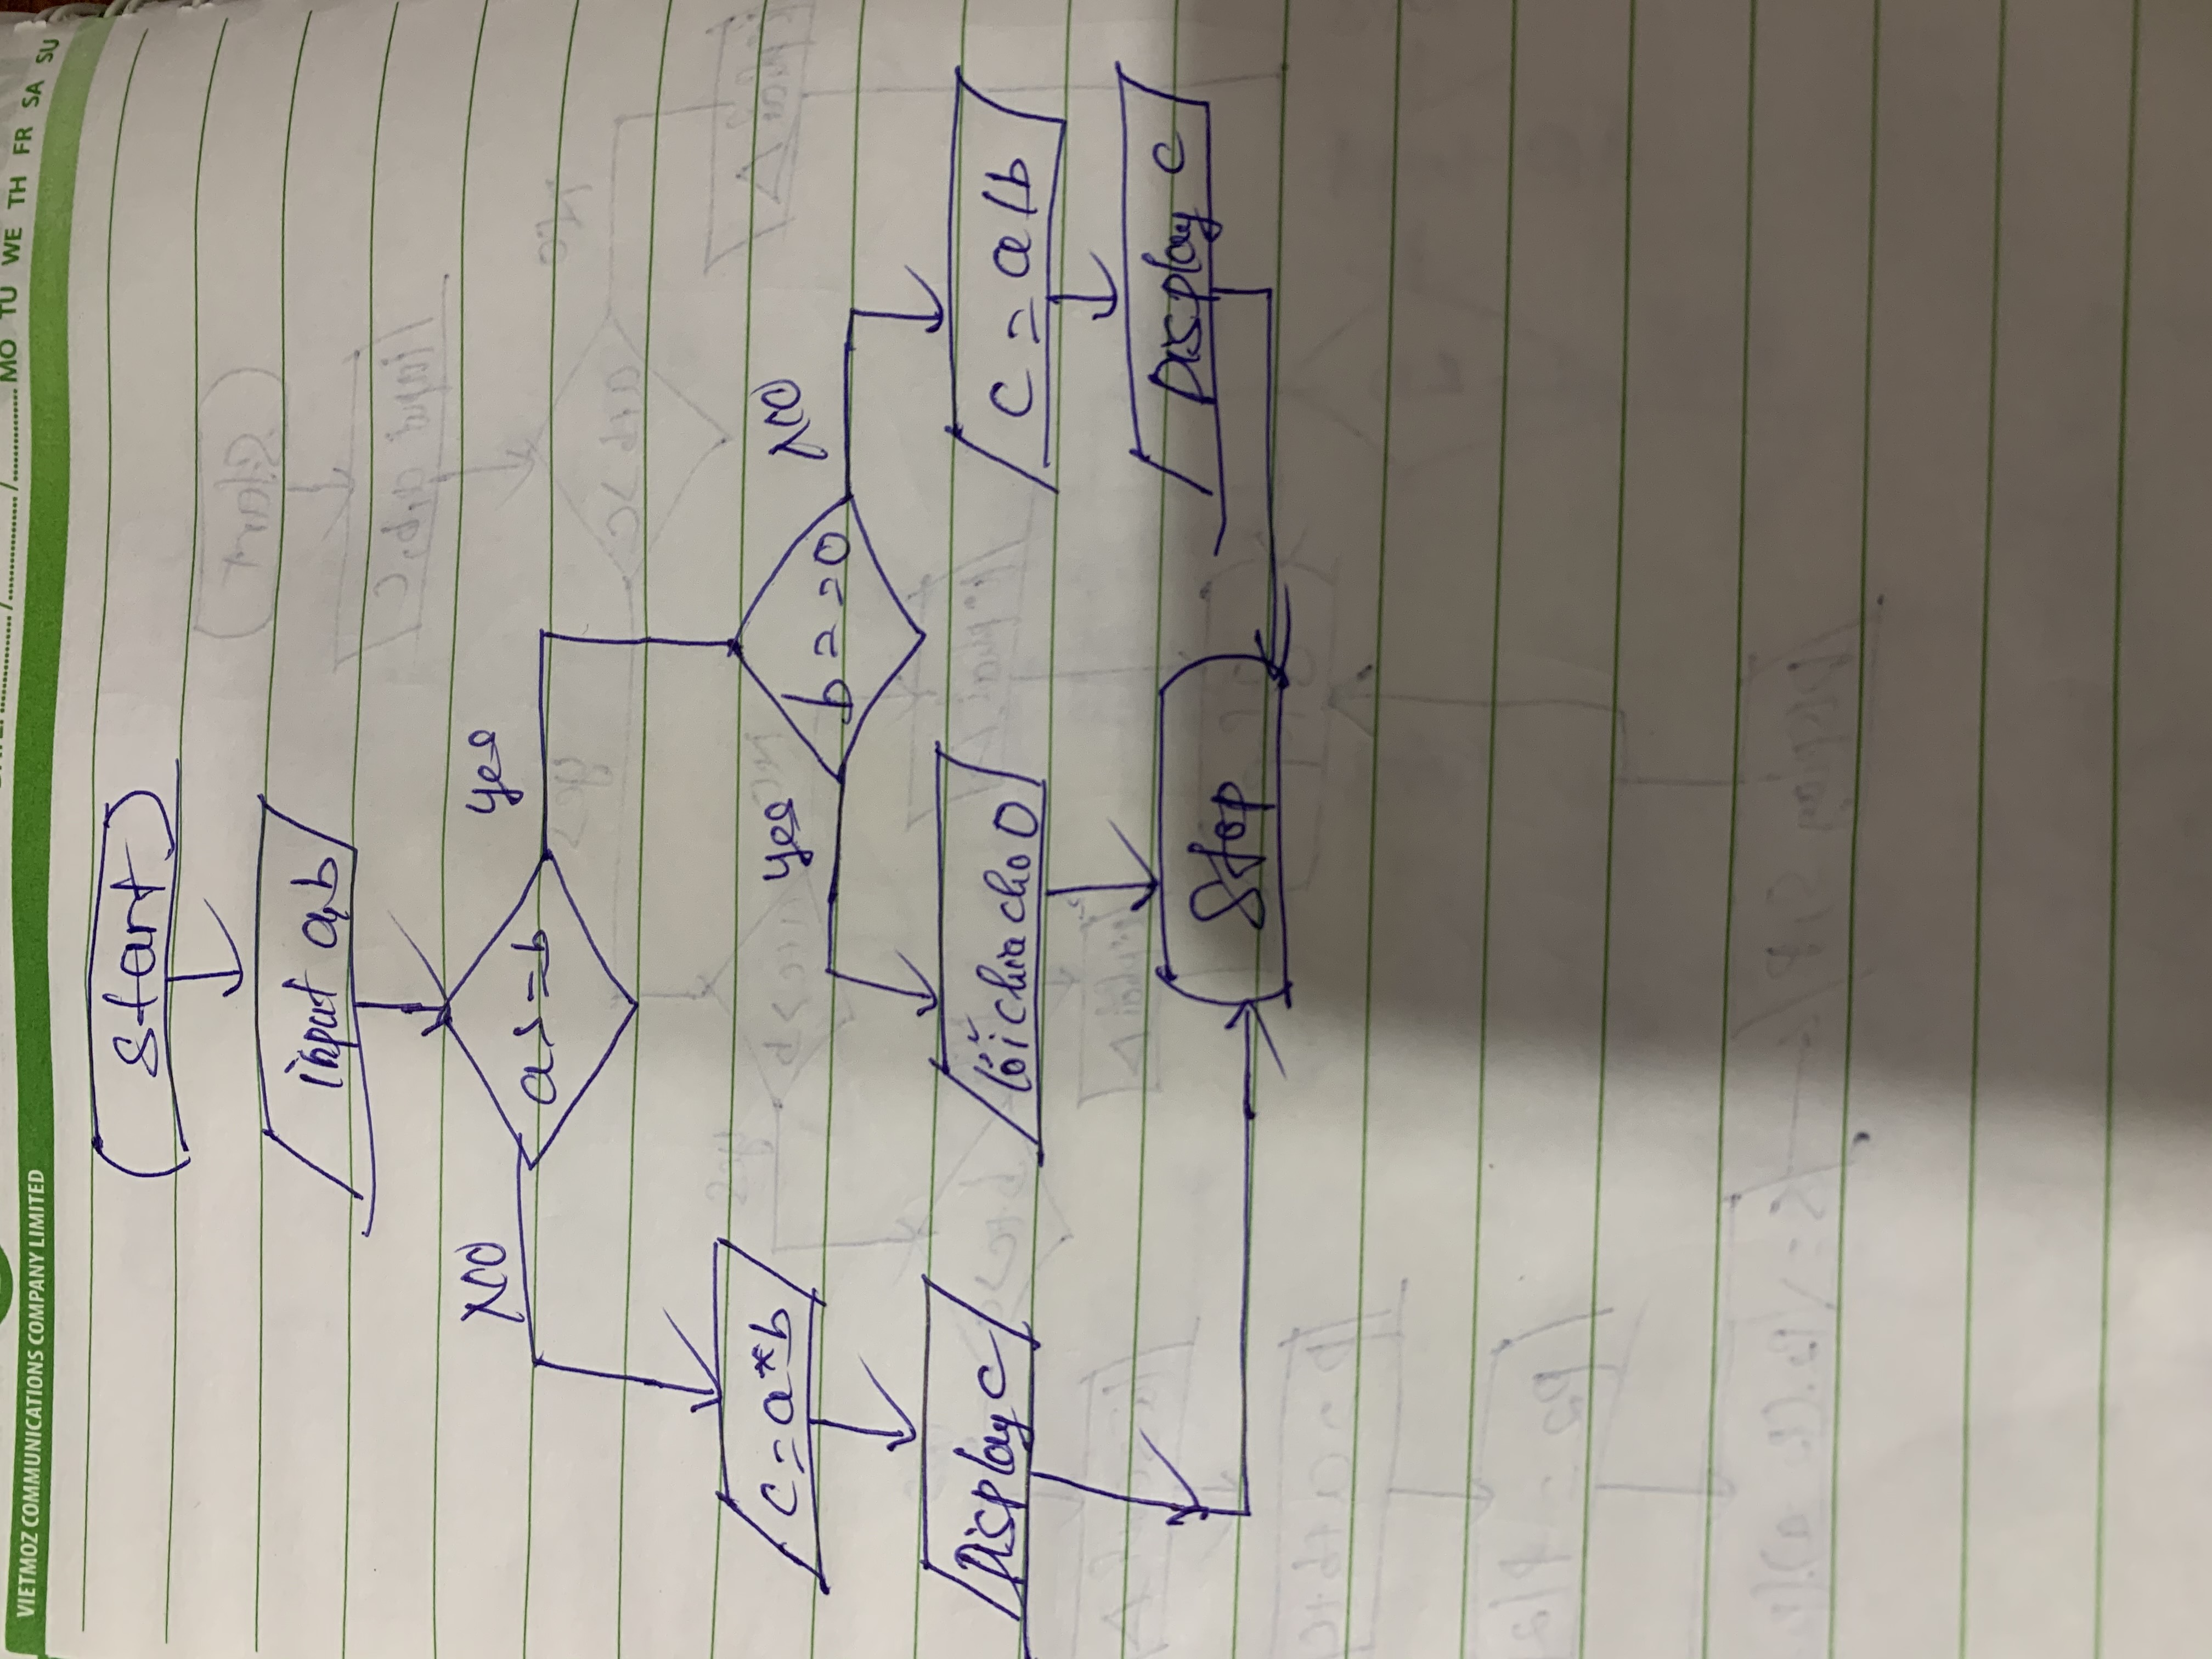 VIETMOZ COMMUNICATIONS COMPANY LIMITED
MO TU WE TH FR SA SU
Start
input a,b
a >= b
NO
yes
c = a*b
b == 0
yes
NO
Display c
lỗi chia cho 0
c = a/b
Display c
Stop